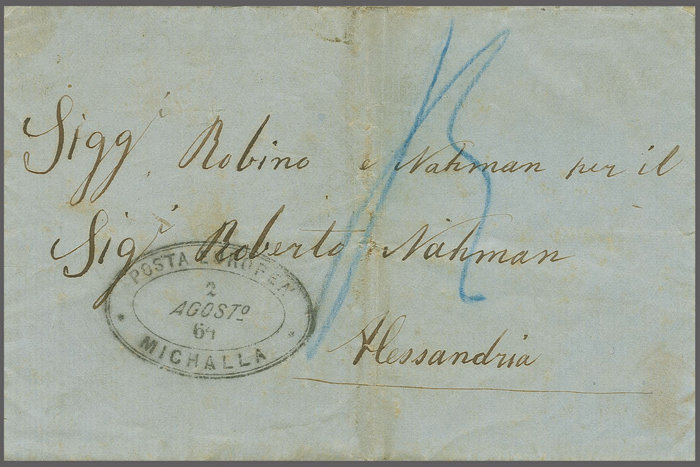 Sigg.ri Robino e Nahman per il
Sig.r Roberto Nahman
Alessandria
POSTA EUROPEA
2
AGOSTO
64
MICHALLA